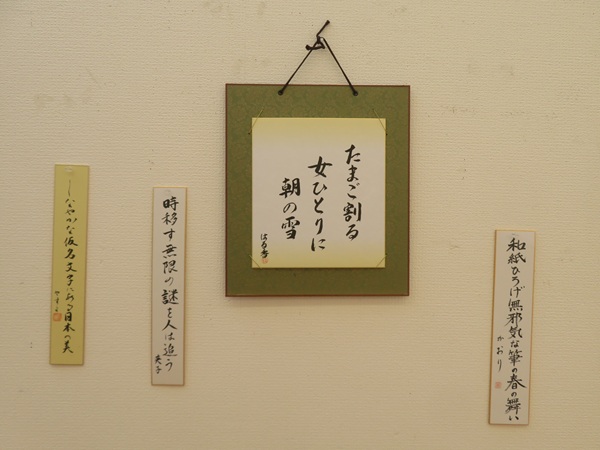 しなやかな仮名文字にみる日本の美
時移す無限の謎を人は追う
英子
たまご割る
女ひとりに
朝の雪
和紙ひろげ無邪気な筆の春の舞い
かおり